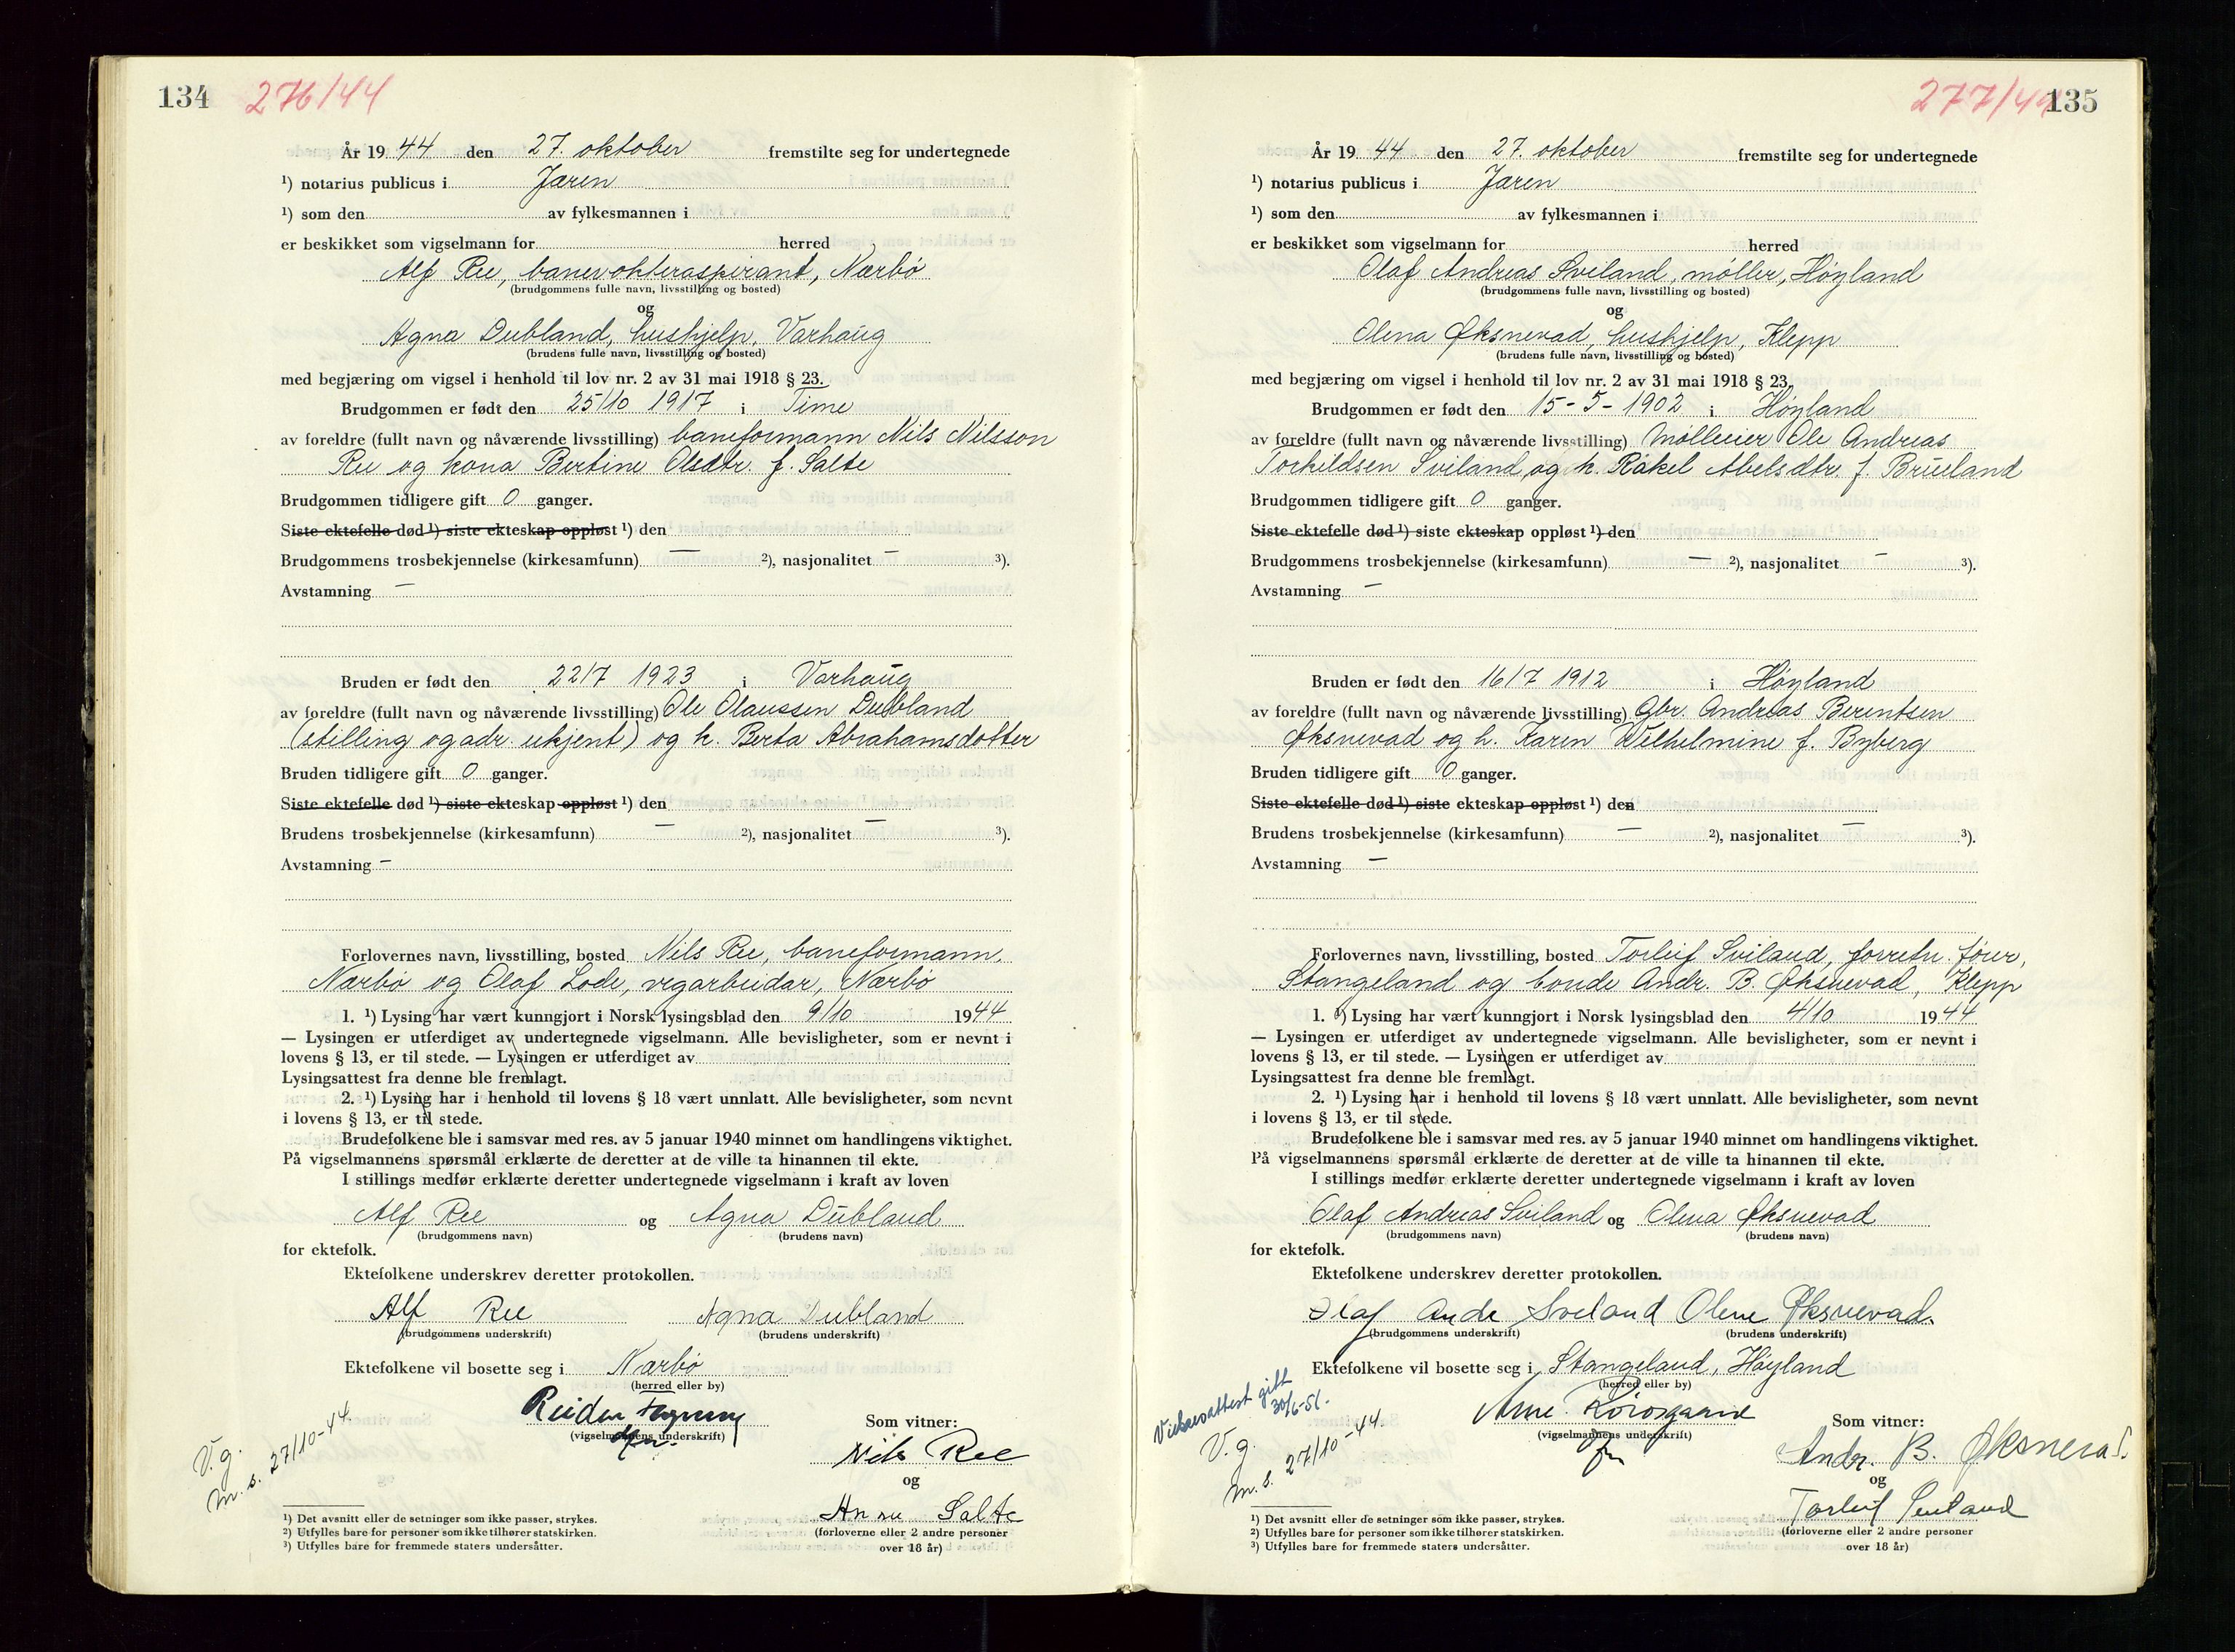 134 276/44
År 19 44 den 27. oktober fremstilte seg for undertegnede
¹) notarius publicus i Jæren
¹) som den av fylkesmannen i
er beskikket som vigselmann for herred
Alf Ree, banevokteraspirant, Nærbø
(brudgommens fulle navn, livsstilling og bosted)
og
Agna Dubland, hushjelp, Varhaug
(brudens fulle navn, livsstilling og bosted)
med begjæring om vigsel i henhold til lov nr. 2 av 31 mai 1918 § 23.
Brudgommen er født den 25/10 1917 i Time
av foreldre (fullt navn og nåværende livsstilling) baneformann Nils Nilsson
Ree og kona Bertine Olsdtr. f. Salte
Brudgommen tidligere gift 0 ganger.
Siste ektefelle død ¹) siste ekteskap oppløst ¹) den
Brudgommens trosbekjennelse (kirkesamfunn) — ²), nasjonalitet — ³).
Avstamning —
Bruden er født den 22/7 1923 i Varhaug
av foreldre (fullt navn og nåværende livsstilling) Ole Olaussen Dubland
(stilling og adr. ukjent) og h. Berta Abrahamsdotter
Bruden tidligere gift 0 ganger.
Siste ektefelle død ¹) siste ekteskap oppløst ¹) den
Brudens trosbekjennelse (kirkesamfunn) — ²), nasjonalitet — ³).
Avstamning —
Forlovernes navn, livsstilling, bosted Nils Ree, baneformann,
Nærbø og Olaf Lode, vegarbeidar, Nærbø
1. ¹) Lysing har vært kunngjort i Norsk lysingsblad den 9/10 1944
— Lysingen er utferdiget av undertegnede vigselmann. Alle bevisligheter, som er nevnt i
lovens § 13, er til stede. — Lysingen er utferdiget av
Lysingsattest fra denne ble fremlagt.
2. ¹) Lysing har i henhold til lovens § 18 vært unnlatt. Alle bevisligheter, som nevnt
i lovens § 13, er til stede.
Brudefolkene ble i samsvar med res. av 5 januar 1940 minnet om handlingens viktighet.
På vigselmannens spørsmål erklærte de deretter at de ville ta hinannen til ekte.
I stillings medfør erklærte deretter undertegnede vigselmann i kraft av loven
Alf Ree og Agna Dubland
(brudgommens navn) (brudens navn)
for ektefolk.
Ektefolkene underskrev deretter protokollen.
Alf Ree Agna Dubland
(brudgommens underskrift) (brudens underskrift)
Ektefolkene vil bosette seg i Nærbø
(herred eller by)
Reidar
(vigselmannens underskrift)
Som vitner:
Nils Ree
og
Anne Salte
(forloverne eller 2 andre personer
over 18 år)
V.g.
m. s. 27/10-44.
¹) Det avsnitt eller de setninger som ikke passer, strykes.
²) Utfylles bare for personer som ikke tilhører statskirken.
³) Utfylles bare for fremmede staters undersåtter.
277/44 135
År 19 44 den 27. oktober fremstilte seg for undertegnede
¹) notarius publicus i Jæren
¹) som den av fylkesmannen i
er beskikket som vigselmann for herred
Olaf Andreas Sviland, møller, Høyland
(brudgommens fulle navn, livsstilling og bosted)
og
Olena Øksnevad, hushjelp, Klepp
(brudens fulle navn, livsstilling og bosted)
med begjæring om vigsel i henhold til lov nr. 2 av 31 mai 1918 § 23.
Brudgommen er født den 15-5-1902 i Høyland
av foreldre (fullt navn og nåværende livsstilling) Mølleier Ole Andreas
Torkildsen Sviland og h. Rakel Abelsdtr. f. Brueland
Brudgommen tidligere gift 0 ganger.
Siste ektefelle død ¹) siste ekteskap oppløst ¹) den
Brudgommens trosbekjennelse (kirkesamfunn) — ²), nasjonalitet — ³).
Avstamning —
Bruden er født den 16/7 1912 i Høyland
av foreldre (fullt navn og nåværende livsstilling) Gbr. Andreas Berentsen
Øksnevad og h. Karen Wilhelmine f. Byberg
Bruden tidligere gift 0 ganger.
Siste ektefelle død ¹) siste ekteskap oppløst ¹) den
Brudens trosbekjennelse (kirkesamfunn) — ²), nasjonalitet — ³).
Avstamning —
Forlovernes navn, livsstilling, bosted Torleif Sviland, forretn. fører,
Stangeland og bonde Andr. B. Øksnevad, Klepp
1. ¹) Lysing har vært kunngjort i Norsk lysingsblad den 4/10 1944
— Lysingen er utferdiget av undertegnede vigselmann. Alle bevisligheter, som er nevnt i
lovens § 13, er til stede. — Lysingen er utferdiget av
Lysingsattest fra denne ble fremlagt.
2. ¹) Lysing har i henhold til lovens § 18 vært unnlatt. Alle bevisligheter, som nevnt
i lovens § 13, er til stede.
Brudefolkene ble i samsvar med res. av 5 januar 1940 minnet om handlingens viktighet.
På vigselmannens spørsmål erklærte de deretter at de ville ta hinannen til ekte.
I stillings medfør erklærte deretter undertegnede vigselmann i kraft av loven
Olaf Andreas Sviland og Olena Øksnevad
(brudgommens navn) (brudens navn)
for ektefolk.
Ektefolkene underskrev deretter protokollen.
Olaf Andr Sviland Olene Øksnevad.
(brudgommens underskrift) (brudens underskrift)
Ektefolkene vil bosette seg i Stangeland, Høyland
(herred eller by)
Arne
(vigselmannens underskrift)
Som vitner:
Andr. B. Øksnevad.
og
Torleif Sviland
(forloverne eller 2 andre personer
over 18 år)
Vielsesattest gitt
30/6-51.
V.g.
m. s. 27/10-44.
¹) Det avsnitt eller de setninger som ikke passer, strykes.
²) Utfylles bare for personer som ikke tilhører statskirken.
³) Utfylles bare for fremmede staters undersåtter.